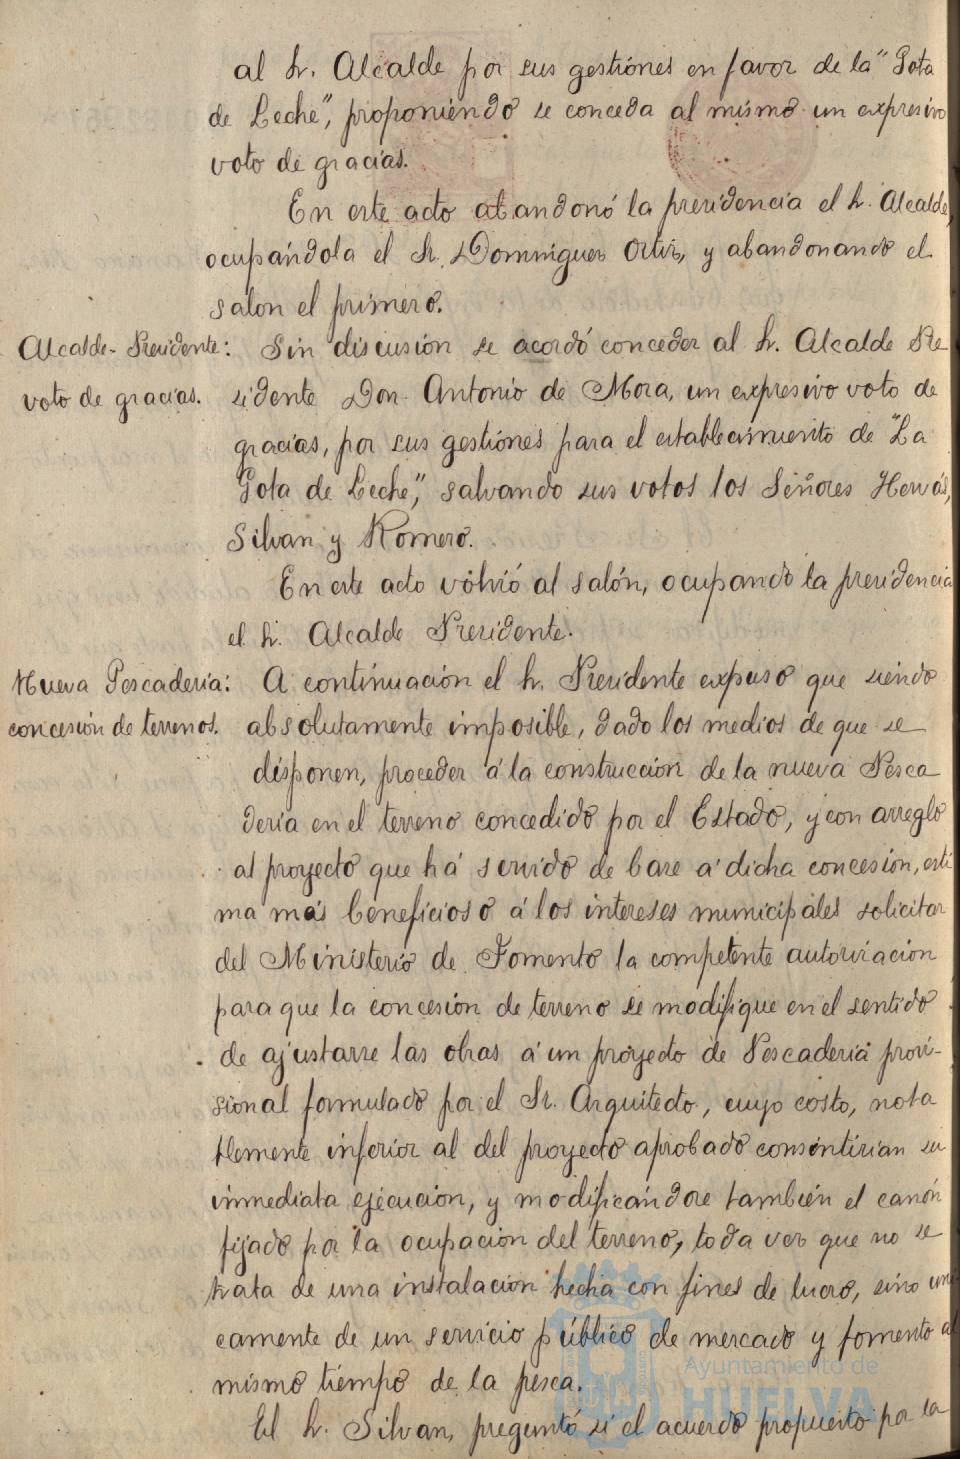 al Sr. Alcalde por sus gestiones en favor de la "Gota
de Leche", proponiendo se conceda al mismo un expresivo
voto de gracias.
En este acto abandonó la presidencia el Sr. Alcalde,
ocupándola el Sr. Domínguez Ortiz, y abandonando el
salon el primero.
Alcalde-Presidente:
voto de gracias.
Sin discusión se acordó conceder al Sr. Alcalde Pre
sidente Don Antonio de Mora, un expresivo voto de
gracias, por sus gestiones para el establecimiento de "La
Gota de Leche", salvando sus votos los Señores Hervás,
Silvan y Romero.
En este acto volvió al salón, ocupando la presidencia
el Sr. Alcalde Presidente.
Nueva Pescaderia:
concesión de terrenos.
A continuación el Sr. Presidente expuso que siendo
absolutamente imposible, dado los medios de que se
disponen, proceder á la construccion de la nueva Pesca
deria en el terreno concedido por el Estado, y con arreglo
al proyecto que há servido de base á dicha concesion, esti
ma más beneficioso á los intereses municipales solicitar
del Ministerio de Fomento la competente autorizacion
para que la concesión de terreno se modifique en el sentido
de ajustarse las obras á un proyecto de Pescaderia provi-
sional formulado por el Sr. Arquitecto, cuyo costo, nota
blemente inferior al del proyecto aprobado consintirian su
inmediata ejecucion, y modificándose también el canón
fijado por la ocupacion del terreno, toda vez que no se
trata de una instalación hecha con fines de lucro, sino uni
camente de un servicio público de mercado y fomento al
mismo tiempo de la pesca.
El Sr. Silvan, preguntó si el acuerdo propuesto por la
Ayuntamiento de
HUELVA